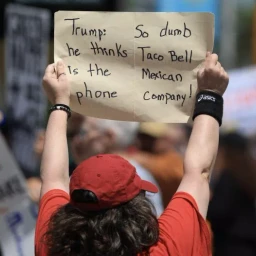 Trump: So dumb
he thinks Taco Bell
is the Mexican
phone company!
asics